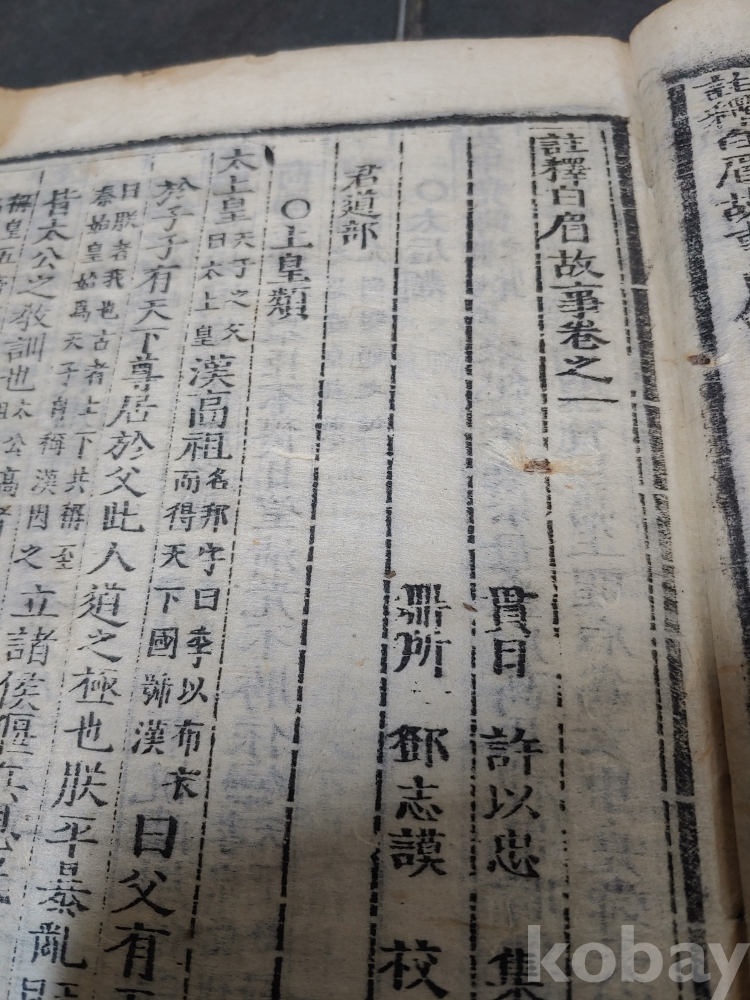 註釋白眉故事
註釋白眉故事卷之一
貫日 許以忠 集
鼎所 鄧志謨 校
君道部
〇上皇類
太上皇天子之父曰太上皇漢高祖名邦字曰季以布衣而得天下國號漢曰父有天
於子子有天下尊居於父此人道之極也朕平暴亂
曰朕者我也古者上下共稱至秦始皇始爲天子自稱漢因之立諸侯偃兵息
皆太公之教訓也太公高
稱皇五
kobay